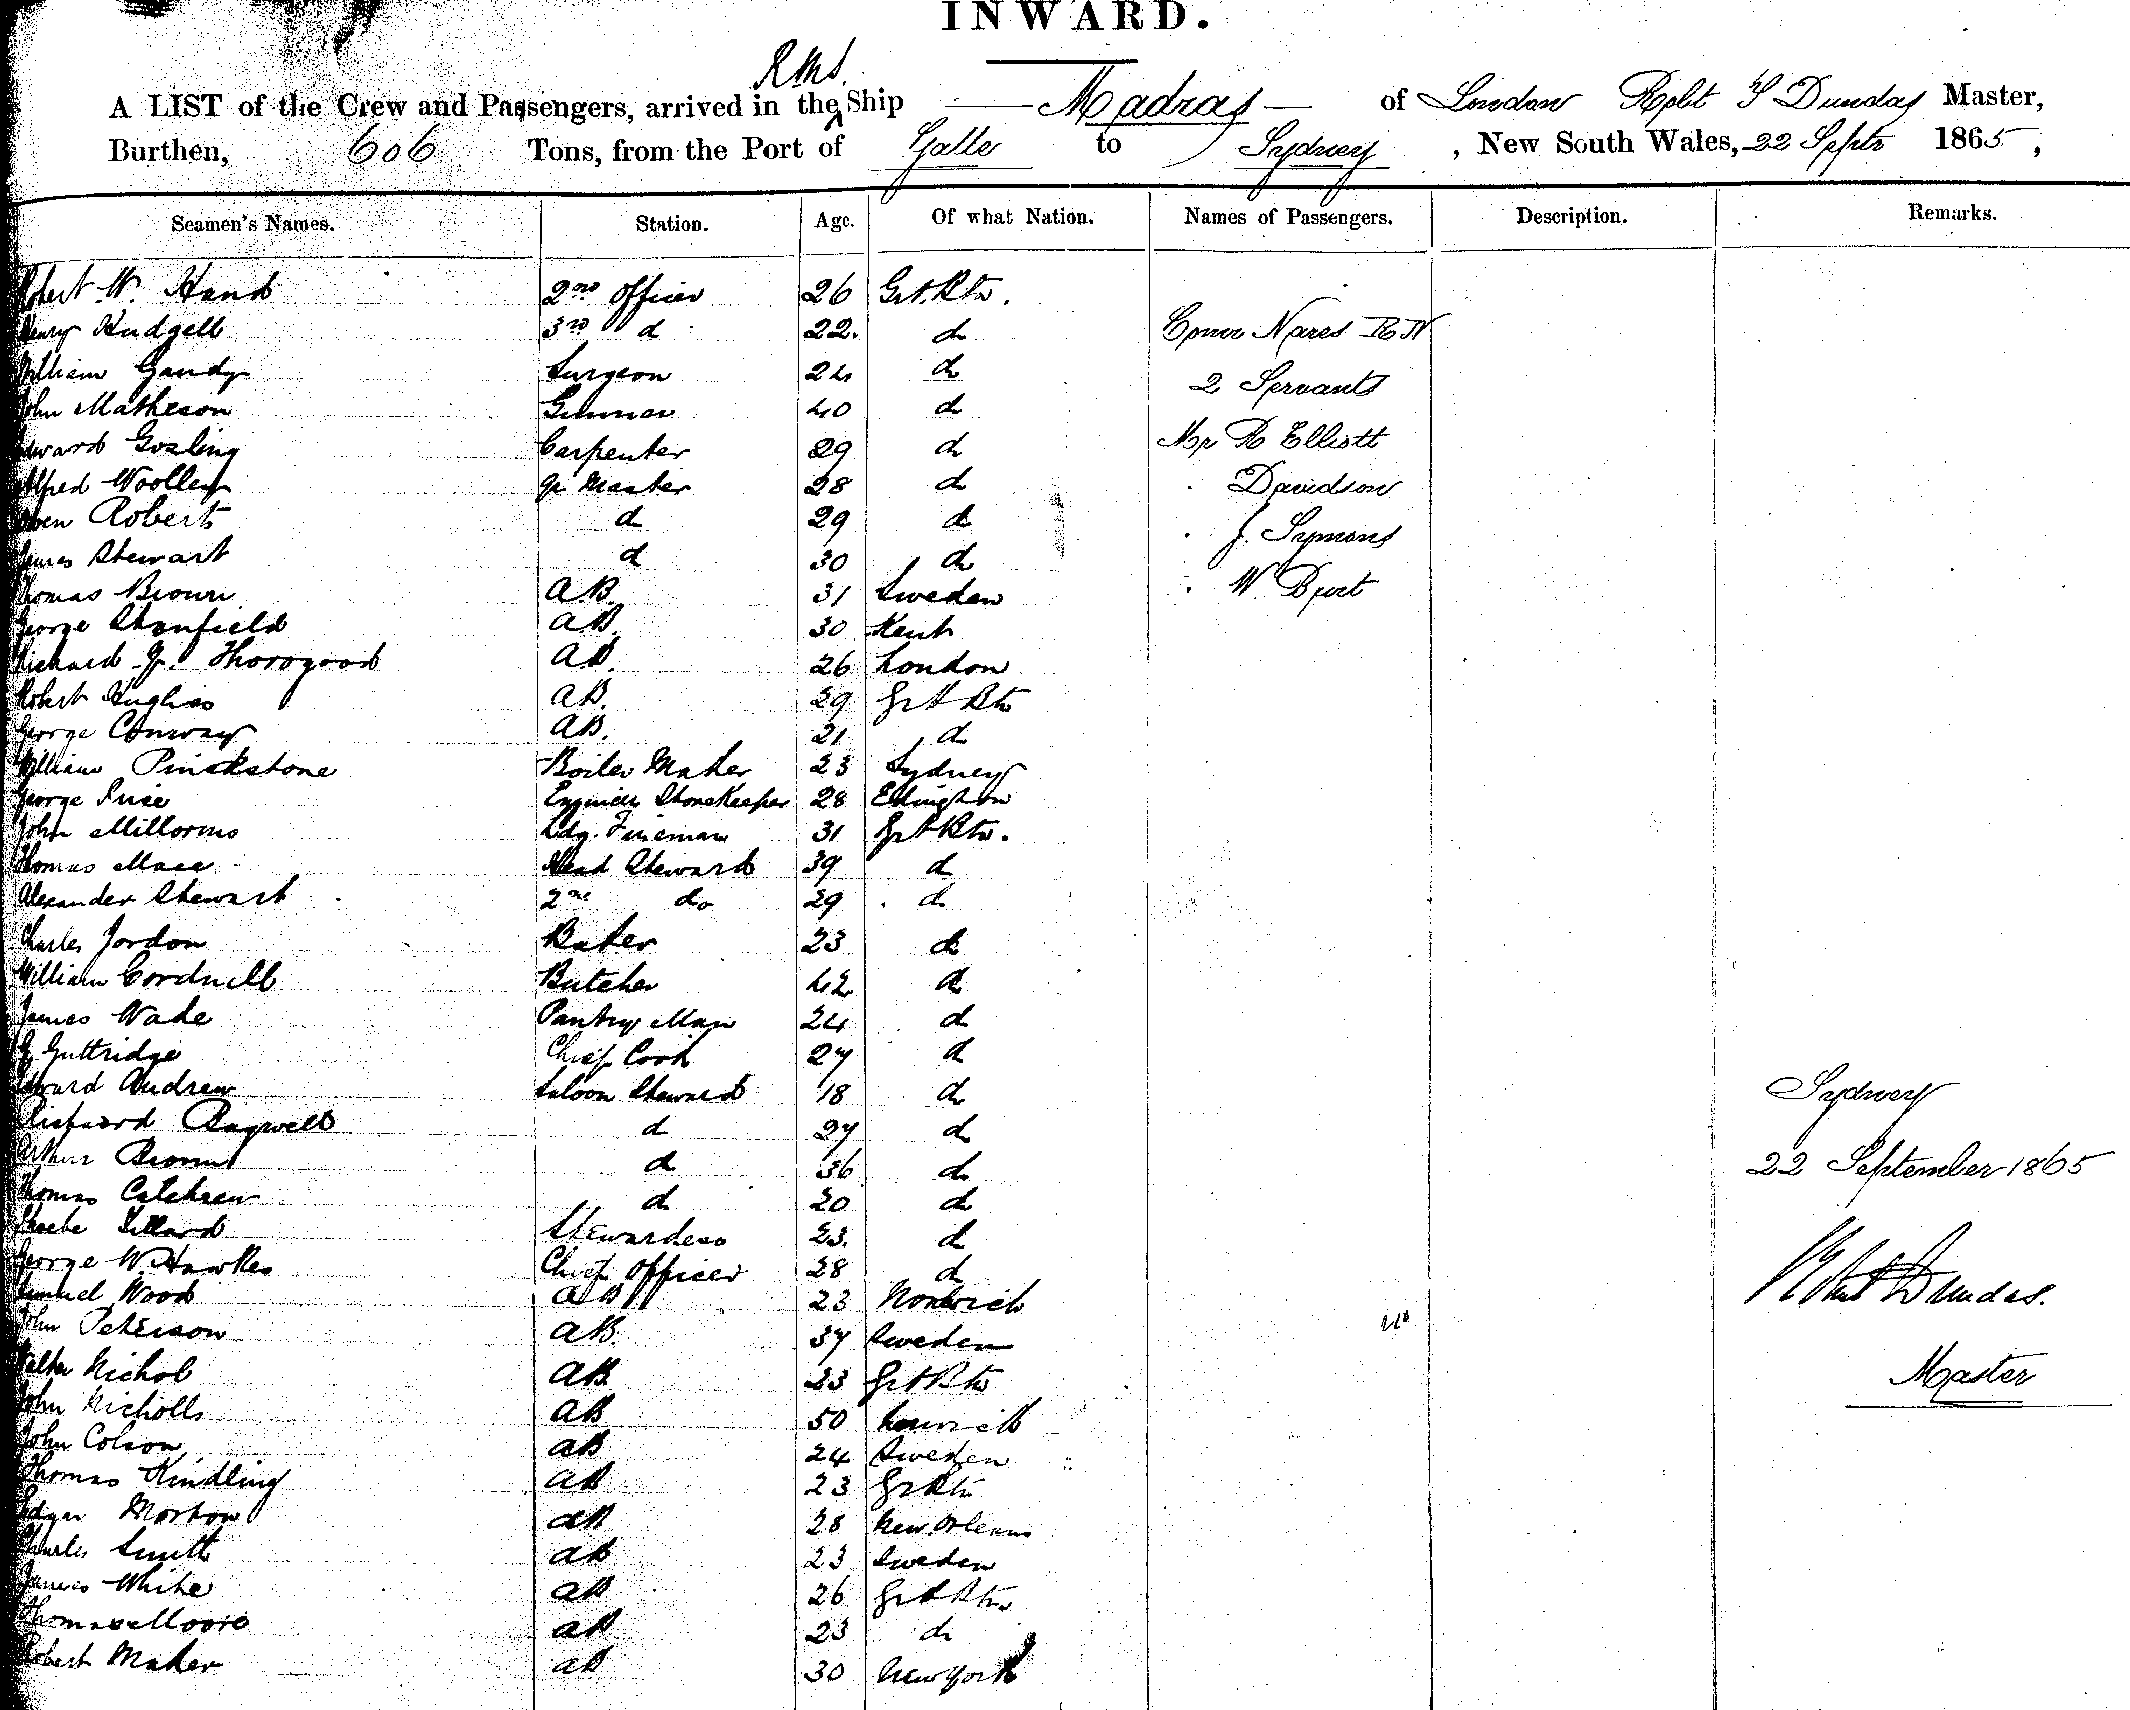 INWARD.
RMS.
A LIST of the Crew and Passengers, arrived in the Ship Madras of London Robt Dundas Master,
Burthen, 606 Tons, from the Port of Galle to Sydney, New South Wales, 22 Septr 1865,
Seamen's Names. Station. Age. Of what Nation. Names of Passengers. Description. Remarks.
Robert W. Hand 2nd Officer 26 Grt. Btn.
Henry Hudgell 3rd d 22. d Comr Nares RN
William Gandy Surgeon 24 d 2 Servants
John Matheson Gunner 40 d
Edward Gosling Carpenter 29 d Mr R Elliott
Alfred Woolley Qr Master 28 d Davidson
Owen Roberts d 29 d
James Stewart d 30 d J. Symons
Thomas Brown AB. 31 Sweden W.
George Stanfield AB. 30 Kent
Richard Thorogood AB. 26 London
Robert Hughes AB. 29 Grt Btn
George Conway AB. 21 d
William Pinckstone Boiler Maker 23 Sydney
George Engineers StoreKeeper 28
John Ldg. Fireman 31 Grt Btn.
Thomas Mace Head Steward 39 d
Alexander Stewart 2nd do 29 d
Charles Jordon Baker 23 d
William Cordwell Butcher 42 d
James Wade Pantry Man 24 d
G Guttridge Chief Cook 27 d
Edward Andrew Saloon Steward 18 d Sydney
Richard Bagwell d 27 d
Arthur Brown d 36 d 22 September 1865
Thomas d 20 d
Phoebe Stewardess 23. d
George W. Hawkes Chief Officer 28 d Robert Dundas.
Samuel Wood AB 23
John Peterson AB. 37 Sweden
Walter Nichol AB. 23 Grt Btn Master
John Nicholls AB 50
John Colson AB 24 Sweden
Thomas Kindling AB 23 Gr Btn
Edgar Morton AB 28 New Orleans
Charles Smith AB 23 Sweden
James White AB 26 Grt Btn
Thomas Moore AB 23 d
Robert Maker AB 30 New York